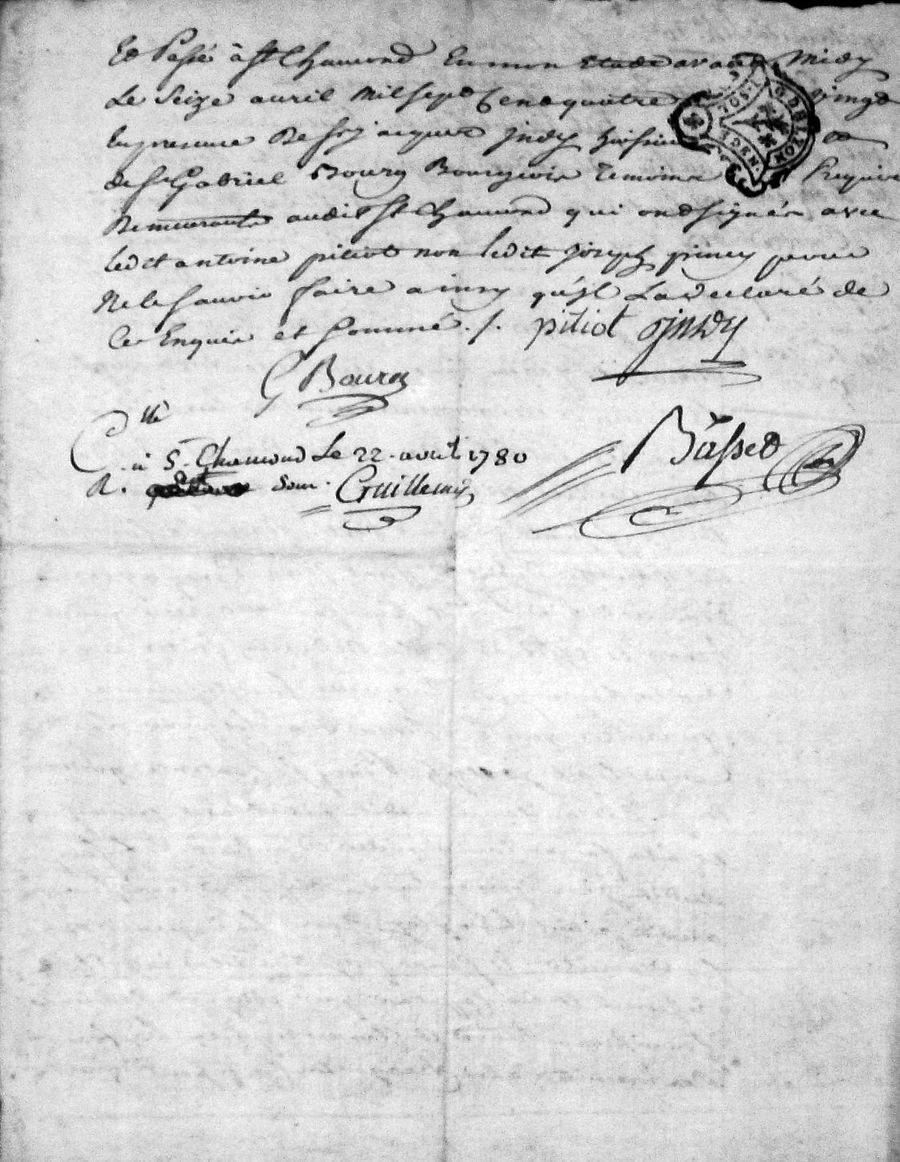 Et Passé à St Chamond En mon Etude avant Midy
Le Seize avril Mil sept Cent quatre vingt
En presence De Sr jacques jndy huissier et
de Sr Gabriel Bourg Bourgeois Temoins Requis
Demeurants audit St Chamond qui ont signés avec
ledit antoine pitiot non ledit joseph piney pour
Ne le sauvoir faire ainsy qu'jl La declaré de
Ce Enquis et sommé ./. pitiot Gjndy
G Bourg
Clle
à St. Chamond Le 22. avril 1780
R. Sous. Guillemin
Basset